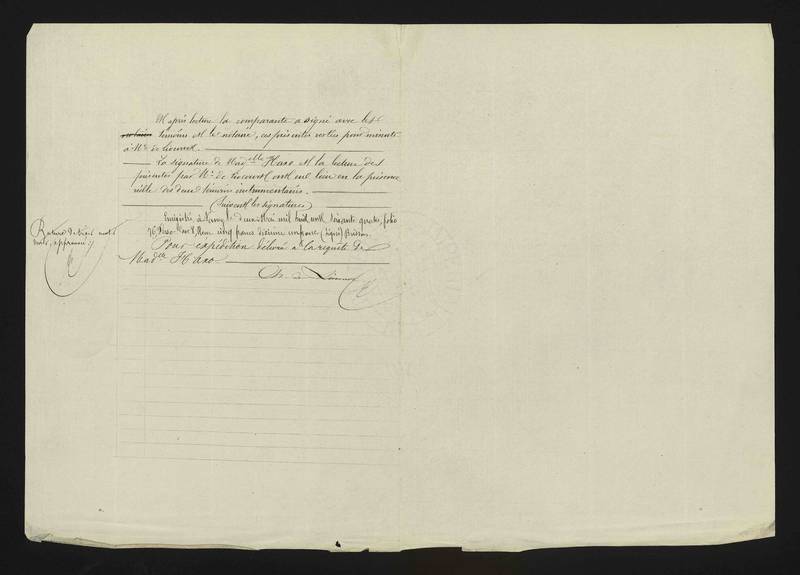 Et après lecture la comparante a signé avec les
témoins et le notaire, ces présentes restées pour minute
à Me de
La signature de Madelle Haxo et la lecture des
présentes par Me de ont eu lieu en la présence
réelle des deux témoins instrumentaires.
(Suivent les signatures)
Enregistré à Nancy le deux Mai mil huit cent soixante quatre, folio
verso case Reçu cinq francs décime (signé)
Pour expédition délivrée à la requête de
Madelle Haxo
Rature de mots
nuls, approuvée